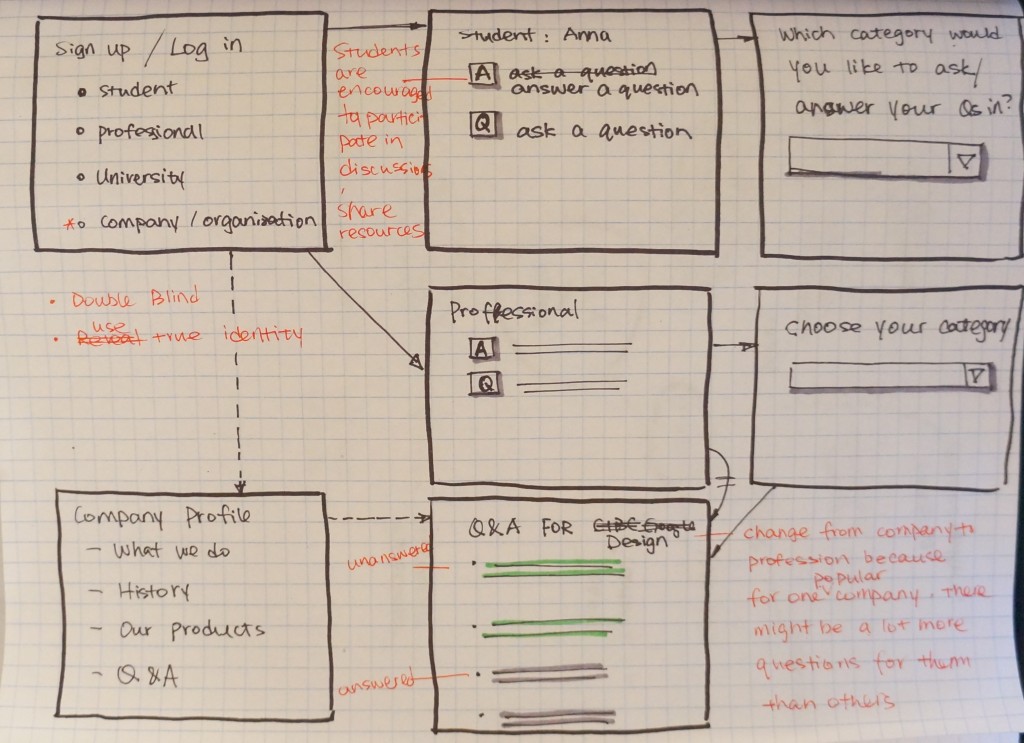 Sign up / Log in
student
profesional
University
* company / organization
Students
are
encouraged
to partici
pate in
discussions
,
share
resources
student : Anna
A ask a question
answer a question
Q ask a question
Which category would
you like to ask/
answer your Qs in?
• Double Blind
use
• Reveal true identity
Proffessional
A
Q
Choose your category
Company Profile
- What we do
- History
- Our products
- Q & A
Q&A FOR CIBC Google
Design
unanswered
answered
change from company to
profession because
popular
for one company, there
might be a lot more
questions for them
than others